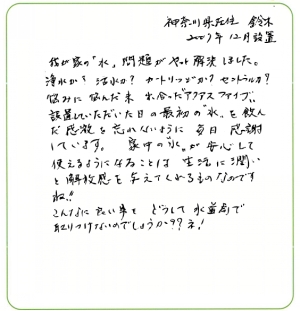 神奈川県在住 鈴木
2007年12月設置
我が家の“水”問題がやっと解決しました。
浄水か？活水か？カートリッジか？セントラルか？
悩みに悩んだ末 出会った“アクアスファイブ”。
設置していただいた日の最初の“水”を飲ん
だ感激を忘れないように毎日感謝
しています。家中の“水”が安心して
使えるようになることは 生活に潤い
と解放感を与えてくれるものなのです
ね!!
こんなに良い事を どうして 水道局で
取りつけないのでしょうか??ネ!